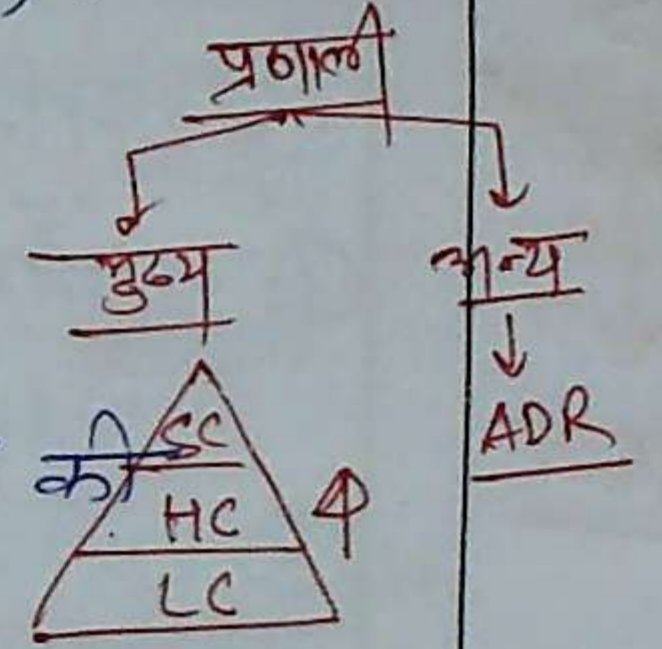 प्रणाली
मुख्य अन्य
ADR
SC
की
HC
LC